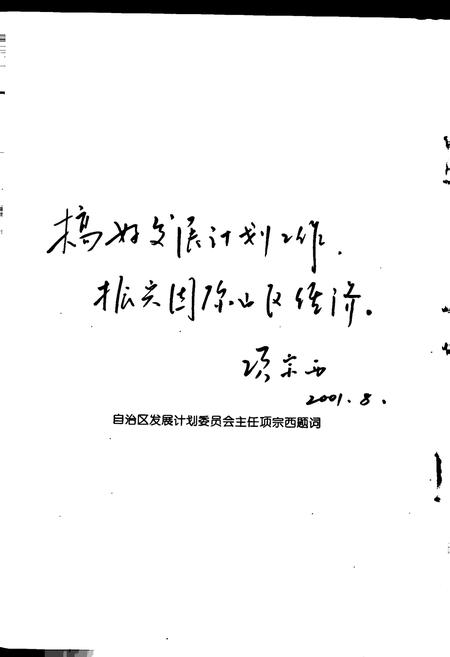 搞好发展计划工作，
振兴固原山区经济。
项宗西
2001.8.
自治区发展计划委员会主任项宗西题词